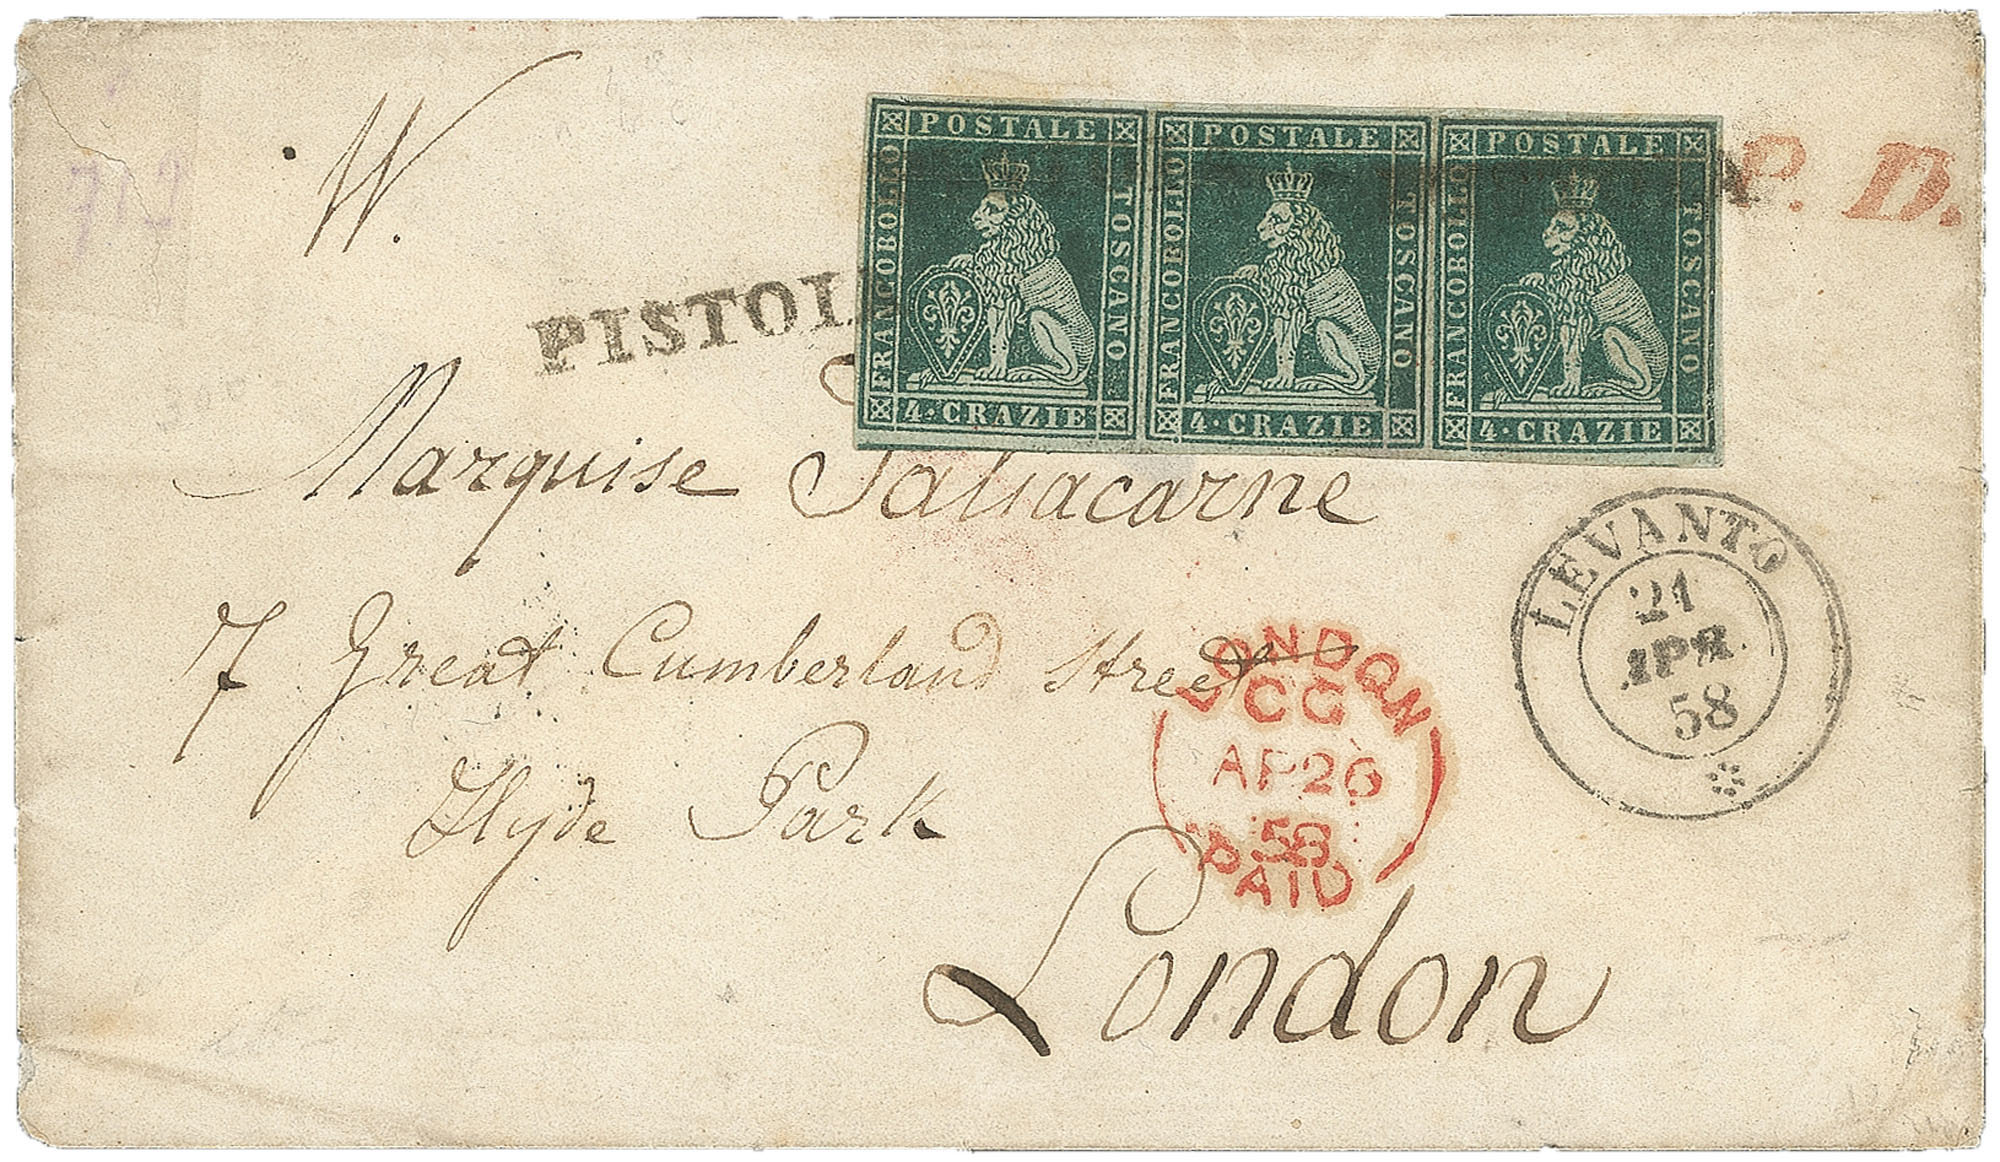 W.
712
P. D.
PISTOI
POSTALE
FRANCOBOLLO
TOSCANO
4·CRAZIE
POSTALE
FRANCOBOLLO
TOSCANO
4·CRAZIE
POSTALE
FRANCOBOLLO
TOSCANO
4·CRAZIE
Marquise Taliacarne
7 Great Cumberland Street
Hyde Park
London
LEVANTO
21
APR
58
LONDON
CG
AP26
58
PAID